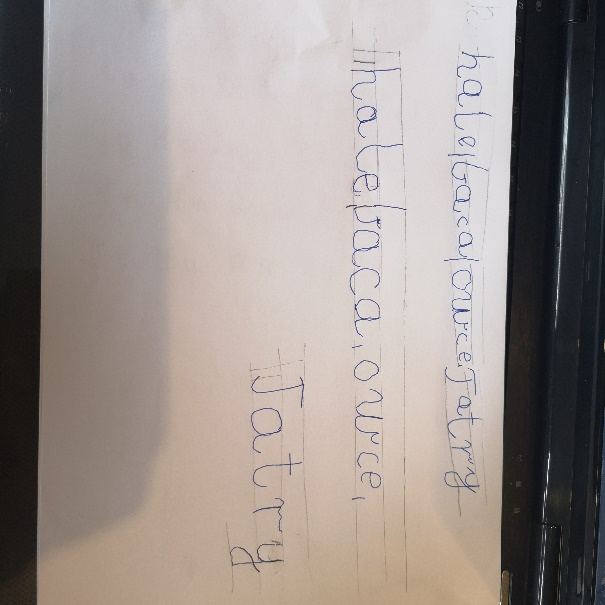 hale baca owce Tatry
hale, baca, owce,
Tatry